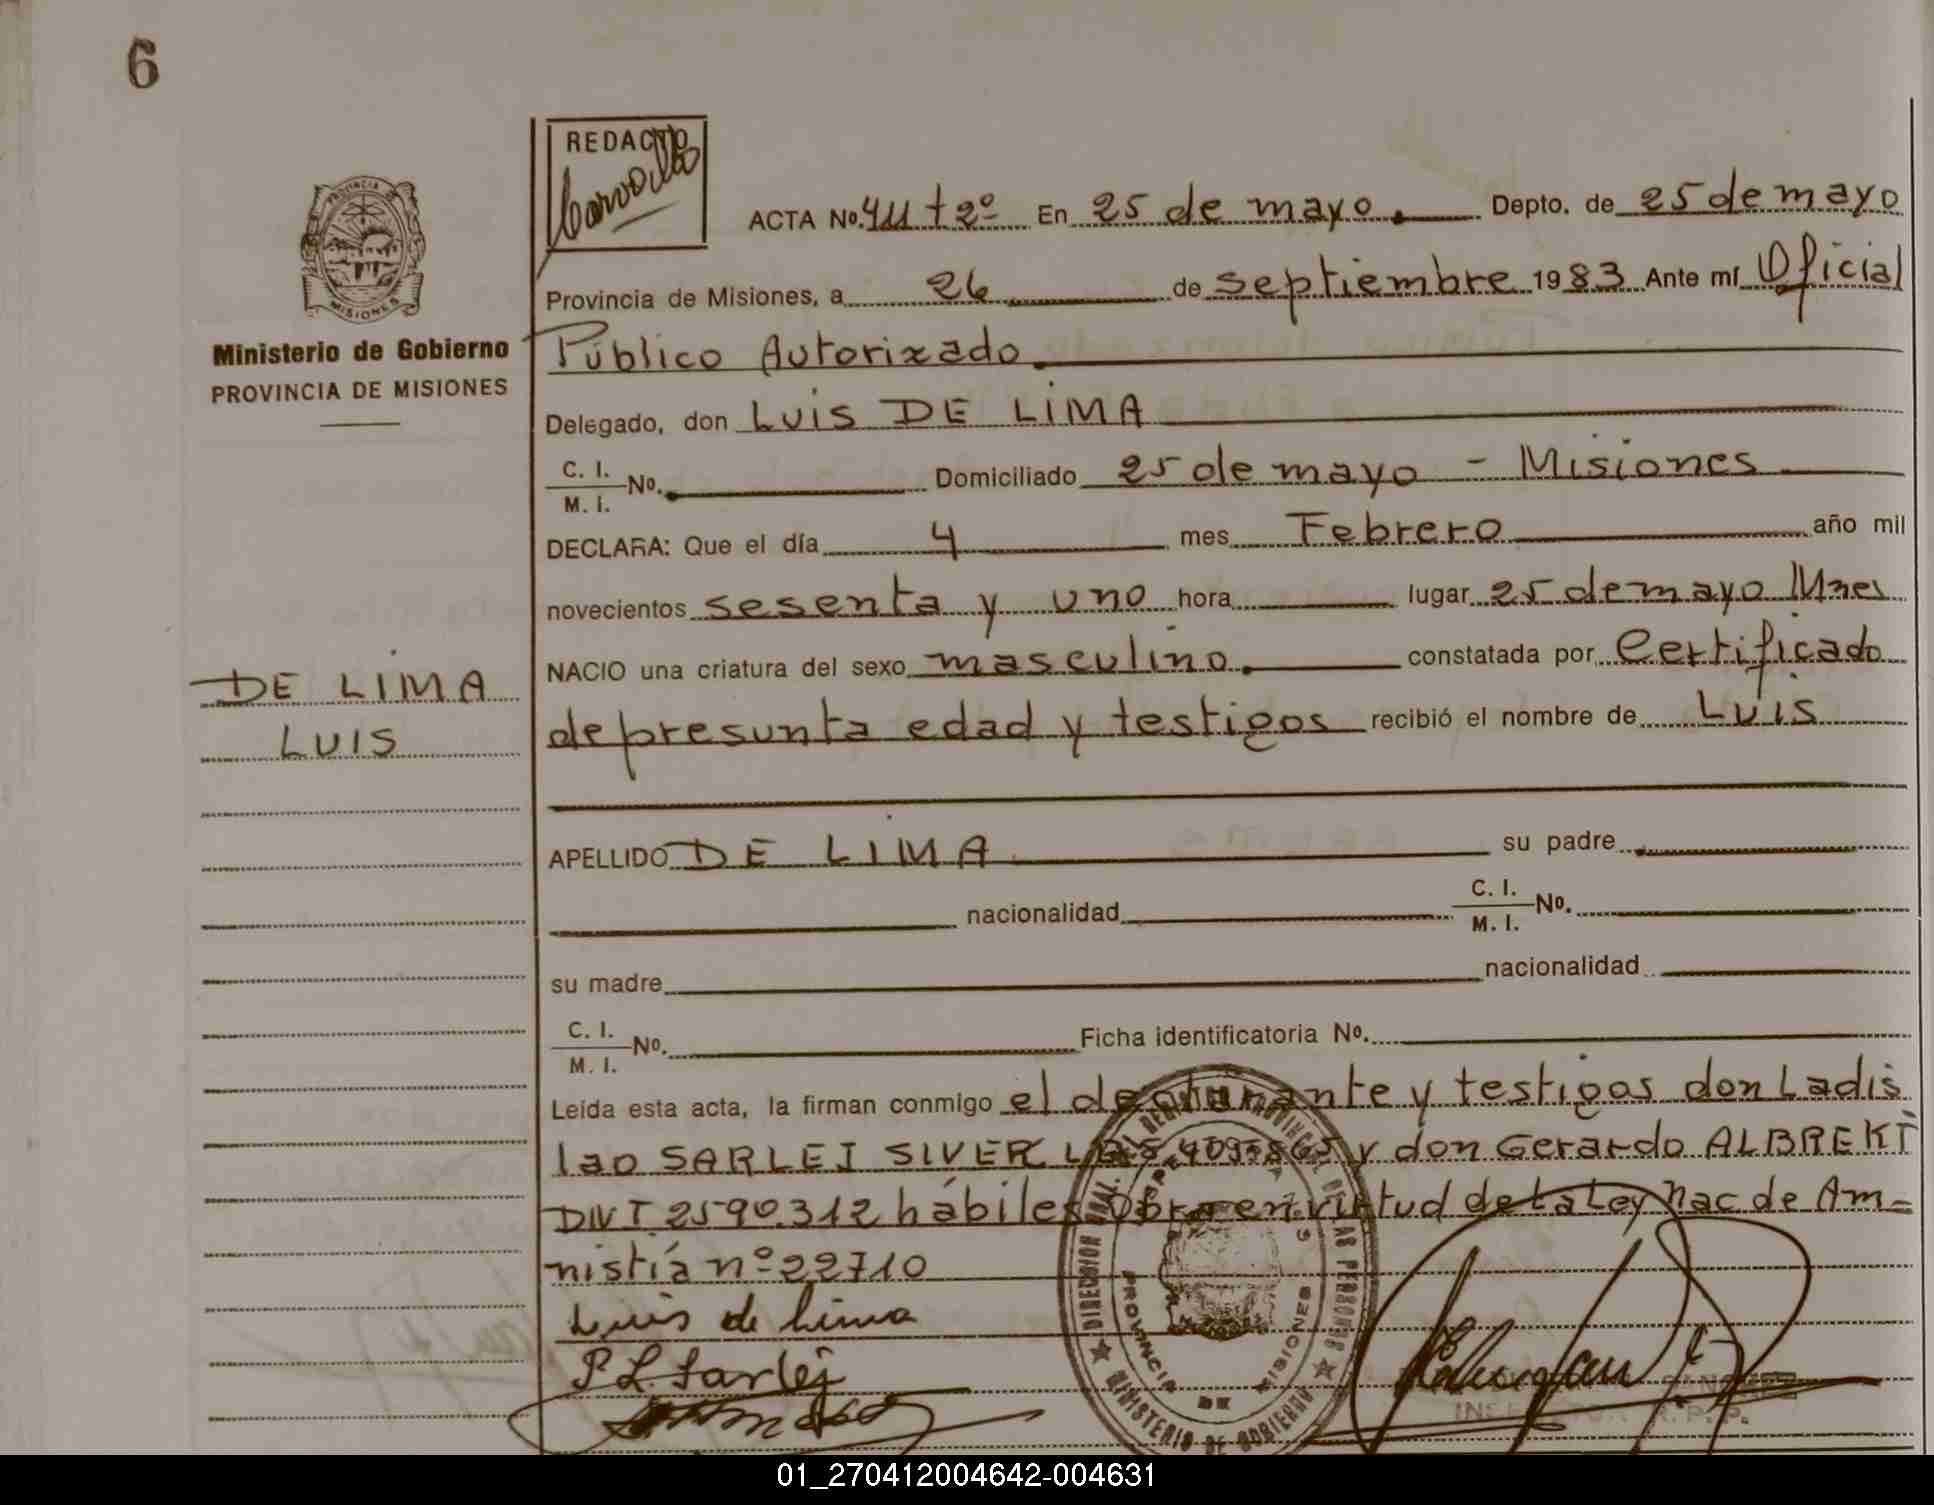 6
REDACTO
PROVINCIA DE
MISIONES
Ministerio de Gobierno
PROVINCIA DE MISIONES
DE LIMA
LUIS
ACTA Nº. 411 t 2º En 25 de mayo. Depto. de 25 de mayo
Provincia de Misiones, a 26 de septiembre 1983 Ante mí Oficial
Público Autorizado
Delegado, don LUIS DE LIMA
C. I.
M. I. Nº. Domiciliado 25 de mayo - Misiones
DECLARA: Que el día 4 mes Febrero año mil
novecientos sesenta y uno hora lugar 25 de mayo Mnes
NACIO una criatura del sexo masculino. constatada por Certificado
de presunta edad y testigos recibió el nombre de LUIS
APELLIDO DE LIMA su padre
nacionalidad C. I.
M. I. Nº.
su madre nacionalidad
C. I.
M. I. Nº. Ficha identificatoria Nº.
Leída esta acta, la firman conmigo el declarante y testigos don Ladis
lao SARLEJ SIVER y don Gerardo ALBREKT
DNI 2590.312 hábiles Obra en virtud de La Ley Nac de Am=
nistía nº 22710
Luis de Lima
P L. Sarlej
PROVINCIA DE MISIONES
MINISTERIO DE GOBIERNO
01_270412004642-004631